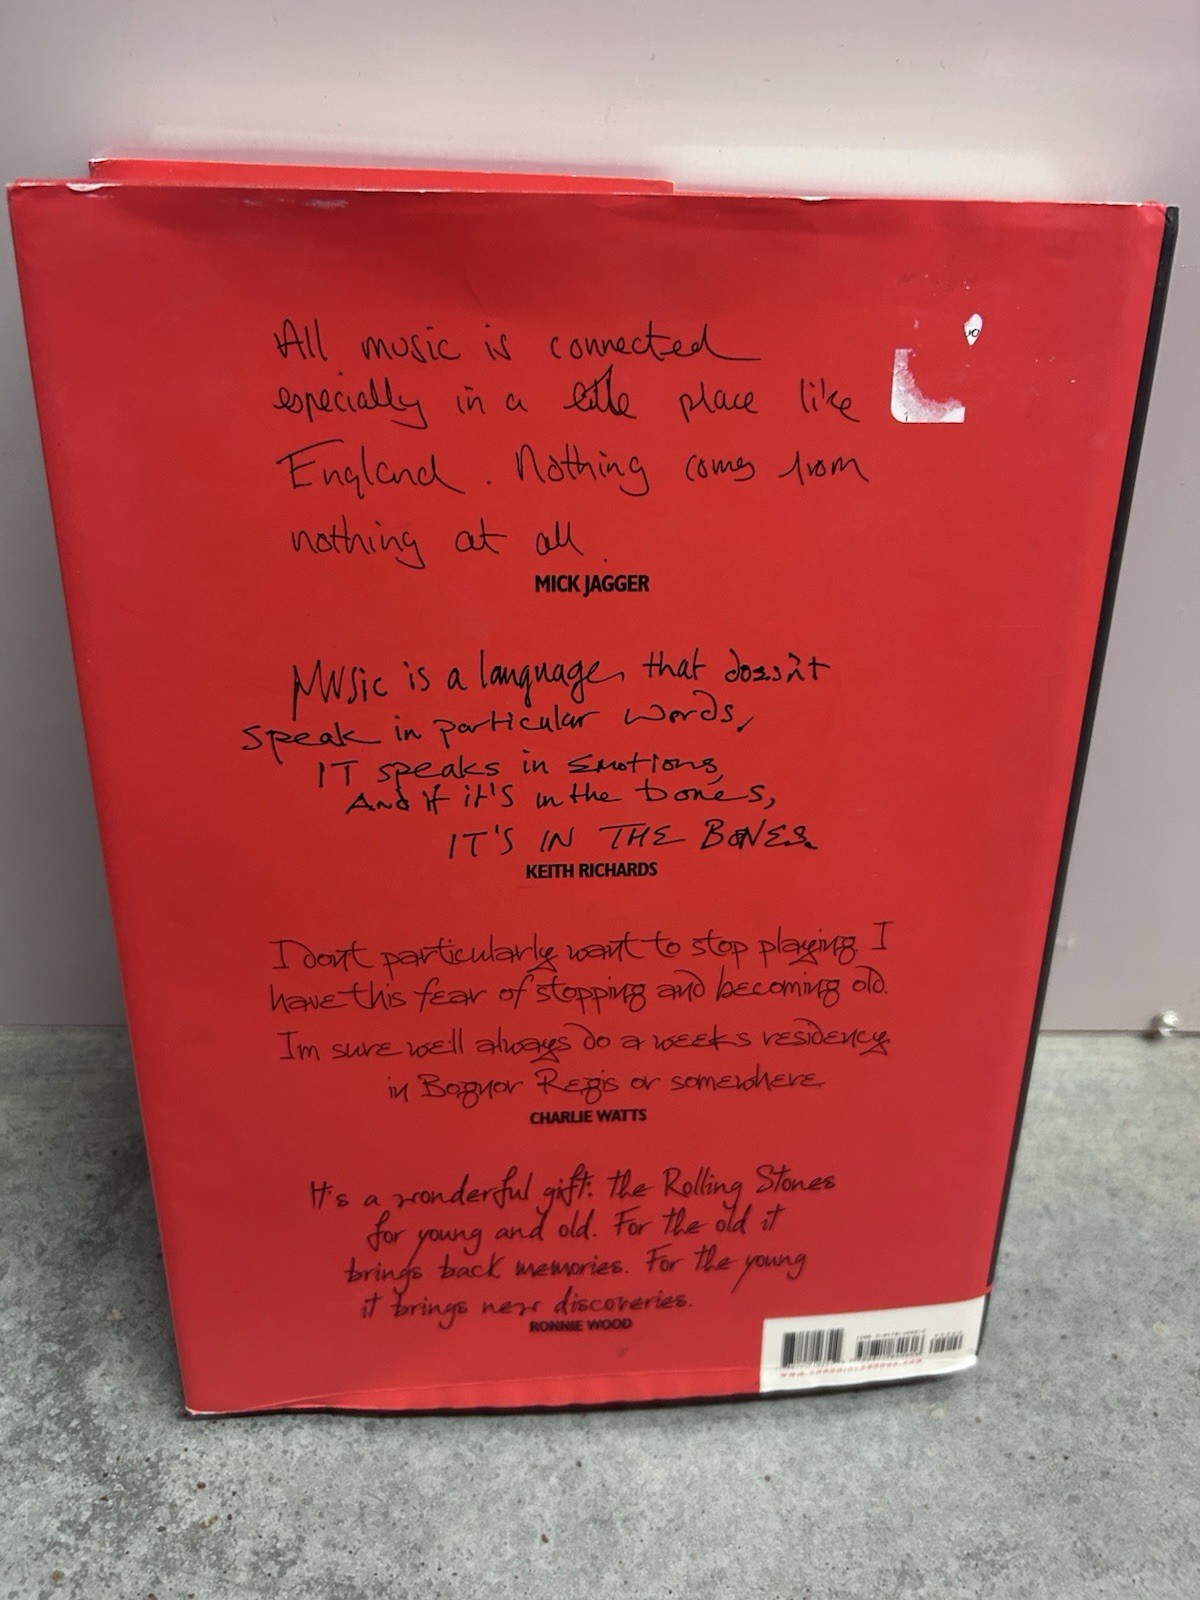 All music is connected
especially in a little place like
England. Nothing comes from
nothing at all.
MICK JAGGER
Music is a language, that doesn't
speak in particular words,
IT speaks in Emotions,
And if it's in the bones,
IT'S IN THE BONES.
KEITH RICHARDS
I dont particularly want to stop playing. I
have this fear of stopping and becoming old.
Im sure we'll always do a week's residency
in Bognor Regis or somewhere
CHARLIE WATTS
It's a wonderful gift: the Rolling Stones
for young and old. For the old it
brings back memories. For the young
it brings new discoveries.
RONNIE WOOD